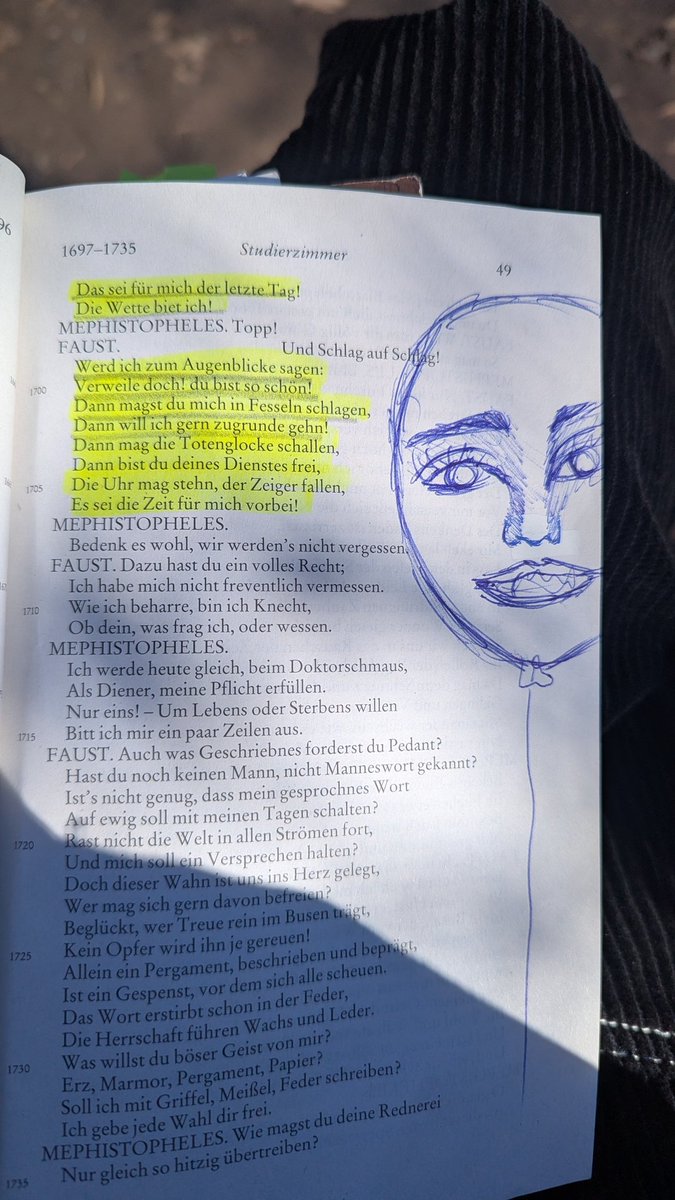 96
1697–1735 Studierzimmer 49
Das sei für mich der letzte Tag!
Die Wette biet ich!
MEPHISTOPHELES. Topp!
FAUST. Und Schlag auf Schlag!
Werd ich zum Augenblicke sagen:
1700 Verweile doch! du bist so schön!
Dann magst du mich in Fesseln schlagen,
Dann will ich gern zugrunde gehn!
Dann mag die Totenglocke schallen,
Dann bist du deines Dienstes frei,
1705 Die Uhr mag stehn, der Zeiger fallen,
Es sei die Zeit für mich vorbei!
MEPHISTOPHELES.
Bedenk es wohl, wir werden's nicht vergessen.
FAUST. Dazu hast du ein volles Recht;
Ich habe mich nicht freventlich vermessen.
1710 Wie ich beharre, bin ich Knecht,
Ob dein, was frag ich, oder wessen.
MEPHISTOPHELES.
Ich werde heute gleich, beim Doktorschmaus,
Als Diener, meine Pflicht erfüllen.
Nur eins! – Um Lebens oder Sterbens willen
1715 Bitt ich mir ein paar Zeilen aus.
FAUST. Auch was Geschriebnes forderst du Pedant?
Hast du noch keinen Mann, nicht Manneswort gekannt?
Ist's nicht genug, dass mein gesprochnes Wort
Auf ewig soll mit meinen Tagen schalten?
1720 Rast nicht die Welt in allen Strömen fort,
Und mich soll ein Versprechen halten?
Doch dieser Wahn ist uns ins Herz gelegt,
Wer mag sich gern davon befreien?
Beglückt, wer Treue rein im Busen trägt,
1725 Kein Opfer wird ihn je gereuen!
Allein ein Pergament, beschrieben und beprägt,
Ist ein Gespenst, vor dem sich alle scheuen.
Das Wort erstirbt schon in der Feder,
Die Herrschaft führen Wachs und Leder.
1730 Was willst du böser Geist von mir?
Erz, Marmor, Pergament, Papier?
Soll ich mit Griffel, Meißel, Feder schreiben?
Ich gebe jede Wahl dir frei.
MEPHISTOPHELES. Wie magst du deine Rednerei
1735 Nur gleich so hitzig übertreiben?